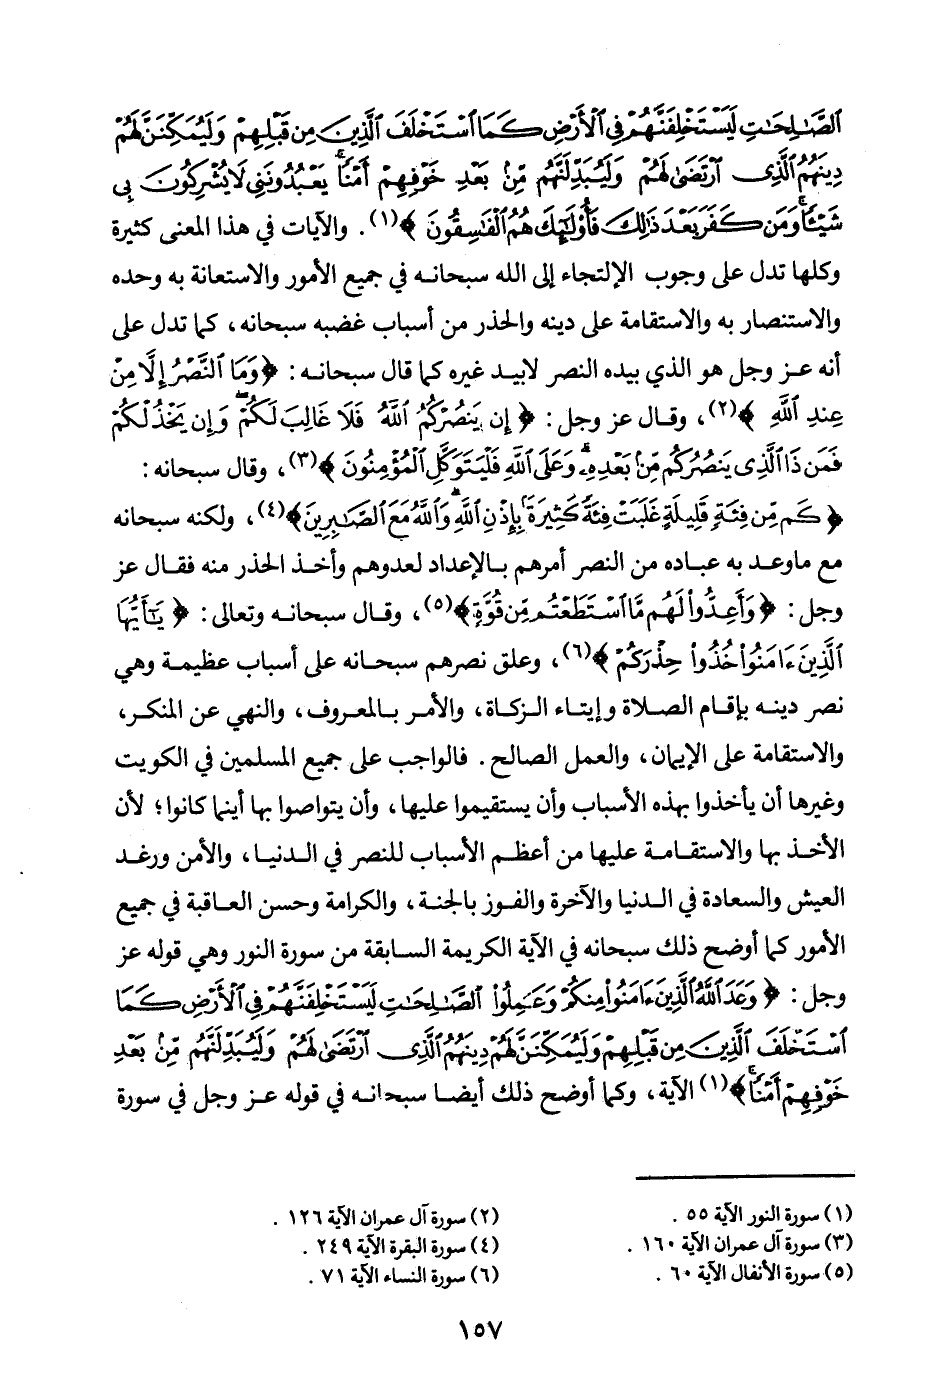 الصَّٰلِحَٰتِ لَيَسْتَخْلِفَنَّهُمْ فِي ٱلْأَرْضِ كَمَا ٱسْتَخْلَفَ ٱلَّذِينَ مِن قَبْلِهِمْ وَلَيُمَكِّنَنَّ لَهُمْ
دِينَهُمُ ٱلَّذِى ٱرْتَضَىٰ لَهُمْ وَلَيُبَدِّلَنَّهُم مِّنۢ بَعْدِ خَوْفِهِمْ أَمْنًا ۚ يَعْبُدُونَنِى لَا يُشْرِكُونَ بِى
شَيْـًٔا ۚ وَمَن كَفَرَ بَعْدَ ذَٰلِكَ فَأُو۟لَٰٓئِكَ هُمُ ٱلْفَٰسِقُونَ ﴾(١). والآيات في هذا المعنى كثيرة
وكلها تدل على وجوب الإلتجاء إلى الله سبحانه في جميع الأمور والاستعانة به وحده
والاستنصار به والاستقامة على دينه والحذر من أسباب غضبه سبحانه، كما تدل على
أنه عز وجل هو الذي بيده النصر لابيد غيره كما قال سبحانه: ﴿ وَمَا ٱلنَّصْرُ إِلَّا مِنْ
عِندِ ٱللَّهِ ﴾(٢)، وقال عز وجل: ﴿ إِن يَنصُرْكُمُ ٱللَّهُ فَلَا غَالِبَ لَكُمْ ۖ وَإِن يَخْذُلْكُمْ
فَمَن ذَا ٱلَّذِى يَنصُرُكُم مِّنۢ بَعْدِهِۦ ۗ وَعَلَى ٱللَّهِ فَلْيَتَوَكَّلِ ٱلْمُؤْمِنُونَ ﴾(٣)، وقال سبحانه:
﴿ كَم مِّن فِئَةٍ قَلِيلَةٍ غَلَبَتْ فِئَةً كَثِيرَةًۢ بِإِذْنِ ٱللَّهِ ۗ وَٱللَّهُ مَعَ ٱلصَّٰبِرِينَ ﴾(٤)، ولكنه سبحانه
مع ماوعد به عباده من النصر أمرهم بالإعداد لعدوهم وأخذ الحذر منه فقال عز
وجل: ﴿ وَأَعِدُّوا۟ لَهُم مَّا ٱسْتَطَعْتُم مِّن قُوَّةٍ ﴾(٥)، وقال سبحانه وتعالى: ﴿ يَٰٓأَيُّهَا
ٱلَّذِينَ ءَامَنُوا۟ خُذُوا۟ حِذْرَكُمْ ﴾(٦)، وعلق نصرهم سبحانه على أسباب عظيمة وهي
نصر دينه بإقام الصلاة وإيتاء الزكاة، والأمر بالمعروف، والنهي عن المنكر،
والاستقامة على الإيمان، والعمل الصالح. فالواجب على جميع المسلمين في الكويت
وغيرها أن يأخذوا بهذه الأسباب وأن يستقيموا عليها، وأن يتواصوا بها أينما كانوا؛ لأن
الأخذ بها والاستقامة عليها من أعظم الأسباب للنصر في الدنيا، والأمن ورغد
العيش والسعادة في الدنيا والآخرة والفوز بالجنة، والكرامة وحسن العاقبة في جميع
الأمور كما أوضح ذلك سبحانه في الآية الكريمة السابقة من سورة النور وهي قوله عز
وجل: ﴿ وَعَدَ ٱللَّهُ ٱلَّذِينَ ءَامَنُوا۟ مِنكُمْ وَعَمِلُوا۟ ٱلصَّٰلِحَٰتِ لَيَسْتَخْلِفَنَّهُمْ فِي ٱلْأَرْضِ كَمَا
ٱسْتَخْلَفَ ٱلَّذِينَ مِن قَبْلِهِمْ وَلَيُمَكِّنَنَّ لَهُمْ دِينَهُمُ ٱلَّذِى ٱرْتَضَىٰ لَهُمْ وَلَيُبَدِّلَنَّهُم مِّنۢ بَعْدِ
خَوْفِهِمْ أَمْنًا ﴾(١) الآية، وكما أوضح ذلك أيضا سبحانه في قوله عز وجل في سورة
(١) سورة النور الآية ٥٥ .
(٢) سورة آل عمران الآية ١٢٦ .
(٣) سورة آل عمران الآية ١٦٠ .
(٤) سورة البقرة الآية ٢٤٩ .
(٥) سورة الأنفال الآية ٦٠ .
(٦) سورة النساء الآية ٧١ .
١٥٧